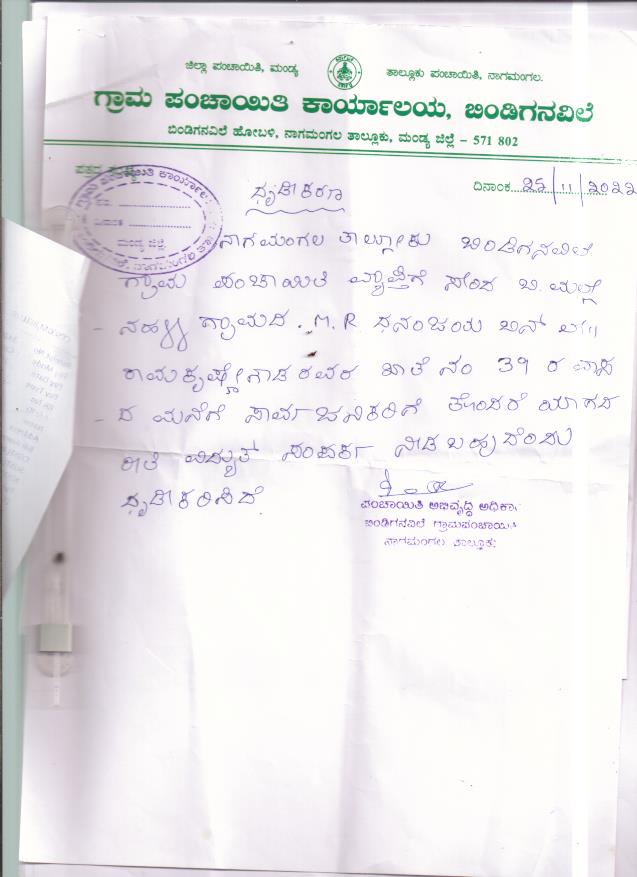 ಜಿಲ್ಲಾ ಪಂಚಾಯಿತಿ, ಮಂಡ್ಯ ತಾಲ್ಲೂಕು ಪಂಚಾಯಿತಿ, ನಾಗಮಂಗಲ.
ಗ್ರಾಮ ಪಂಚಾಯಿತಿ ಕಾರ್ಯಾಲಯ, ಬಿಂಡಿಗನವಿಲೆ
ಬಿಂಡಿಗನವಿಲೆ ಹೋಬಳಿ, ನಾಗಮಂಗಲ ತಾಲ್ಲೂಕು, ಮಂಡ್ಯ ಜಿಲ್ಲೆ – 571 802
ದಿನಾಂಕ 25/11/2022
ಮಂಡ್ಯ ಜಿಲ್ಲೆ.
ಧೃಡೀಕರಣ
ನಾಗಮಂಗಲ ತಾಲ್ಲೂಕು ಬಿಂಡಿಗನವಿಲೆ
ಗ್ರಾಮ ಪಂಚಾಯಿತಿ ವ್ಯಾಪ್ತಿಗೆ ಸೇರಿದ ಬಿ. ಮಲ್ಲೇ
ನಹಳ್ಳಿ ಗ್ರಾಮದ . M.R ಧನಂಜಯ ಬಿನ್ ಲೇ||
ರಾಮಕೃಷ್ಣೇಗೌಡ ರವರ ಖಾತೆ ನಂ 39 ರ ವಾಸ
ದ ಮನೆಗೆ ಸಾರ್ವಜನಿಕರಿಗೆ ತೊಂದರೆ ಯಾಗದ
ರೀತಿ ವಿದ್ಯುತ್ ಸಂಪರ್ಕ ನೀಡ ಬಹುದೆಂದು
ಧೃಡೀಕರಿಸಿದೆ.
ಪಂಚಾಯಿತಿ ಅಭಿವೃದ್ಧಿ ಅಧಿಕಾರಿ
ಬಿಂಡಿಗನವಿಲೆ ಗ್ರಾಮಪಂಚಾಯಿತಿ
ನಾಗಮಂಗಲ ತಾಲ್ಲೂಕು